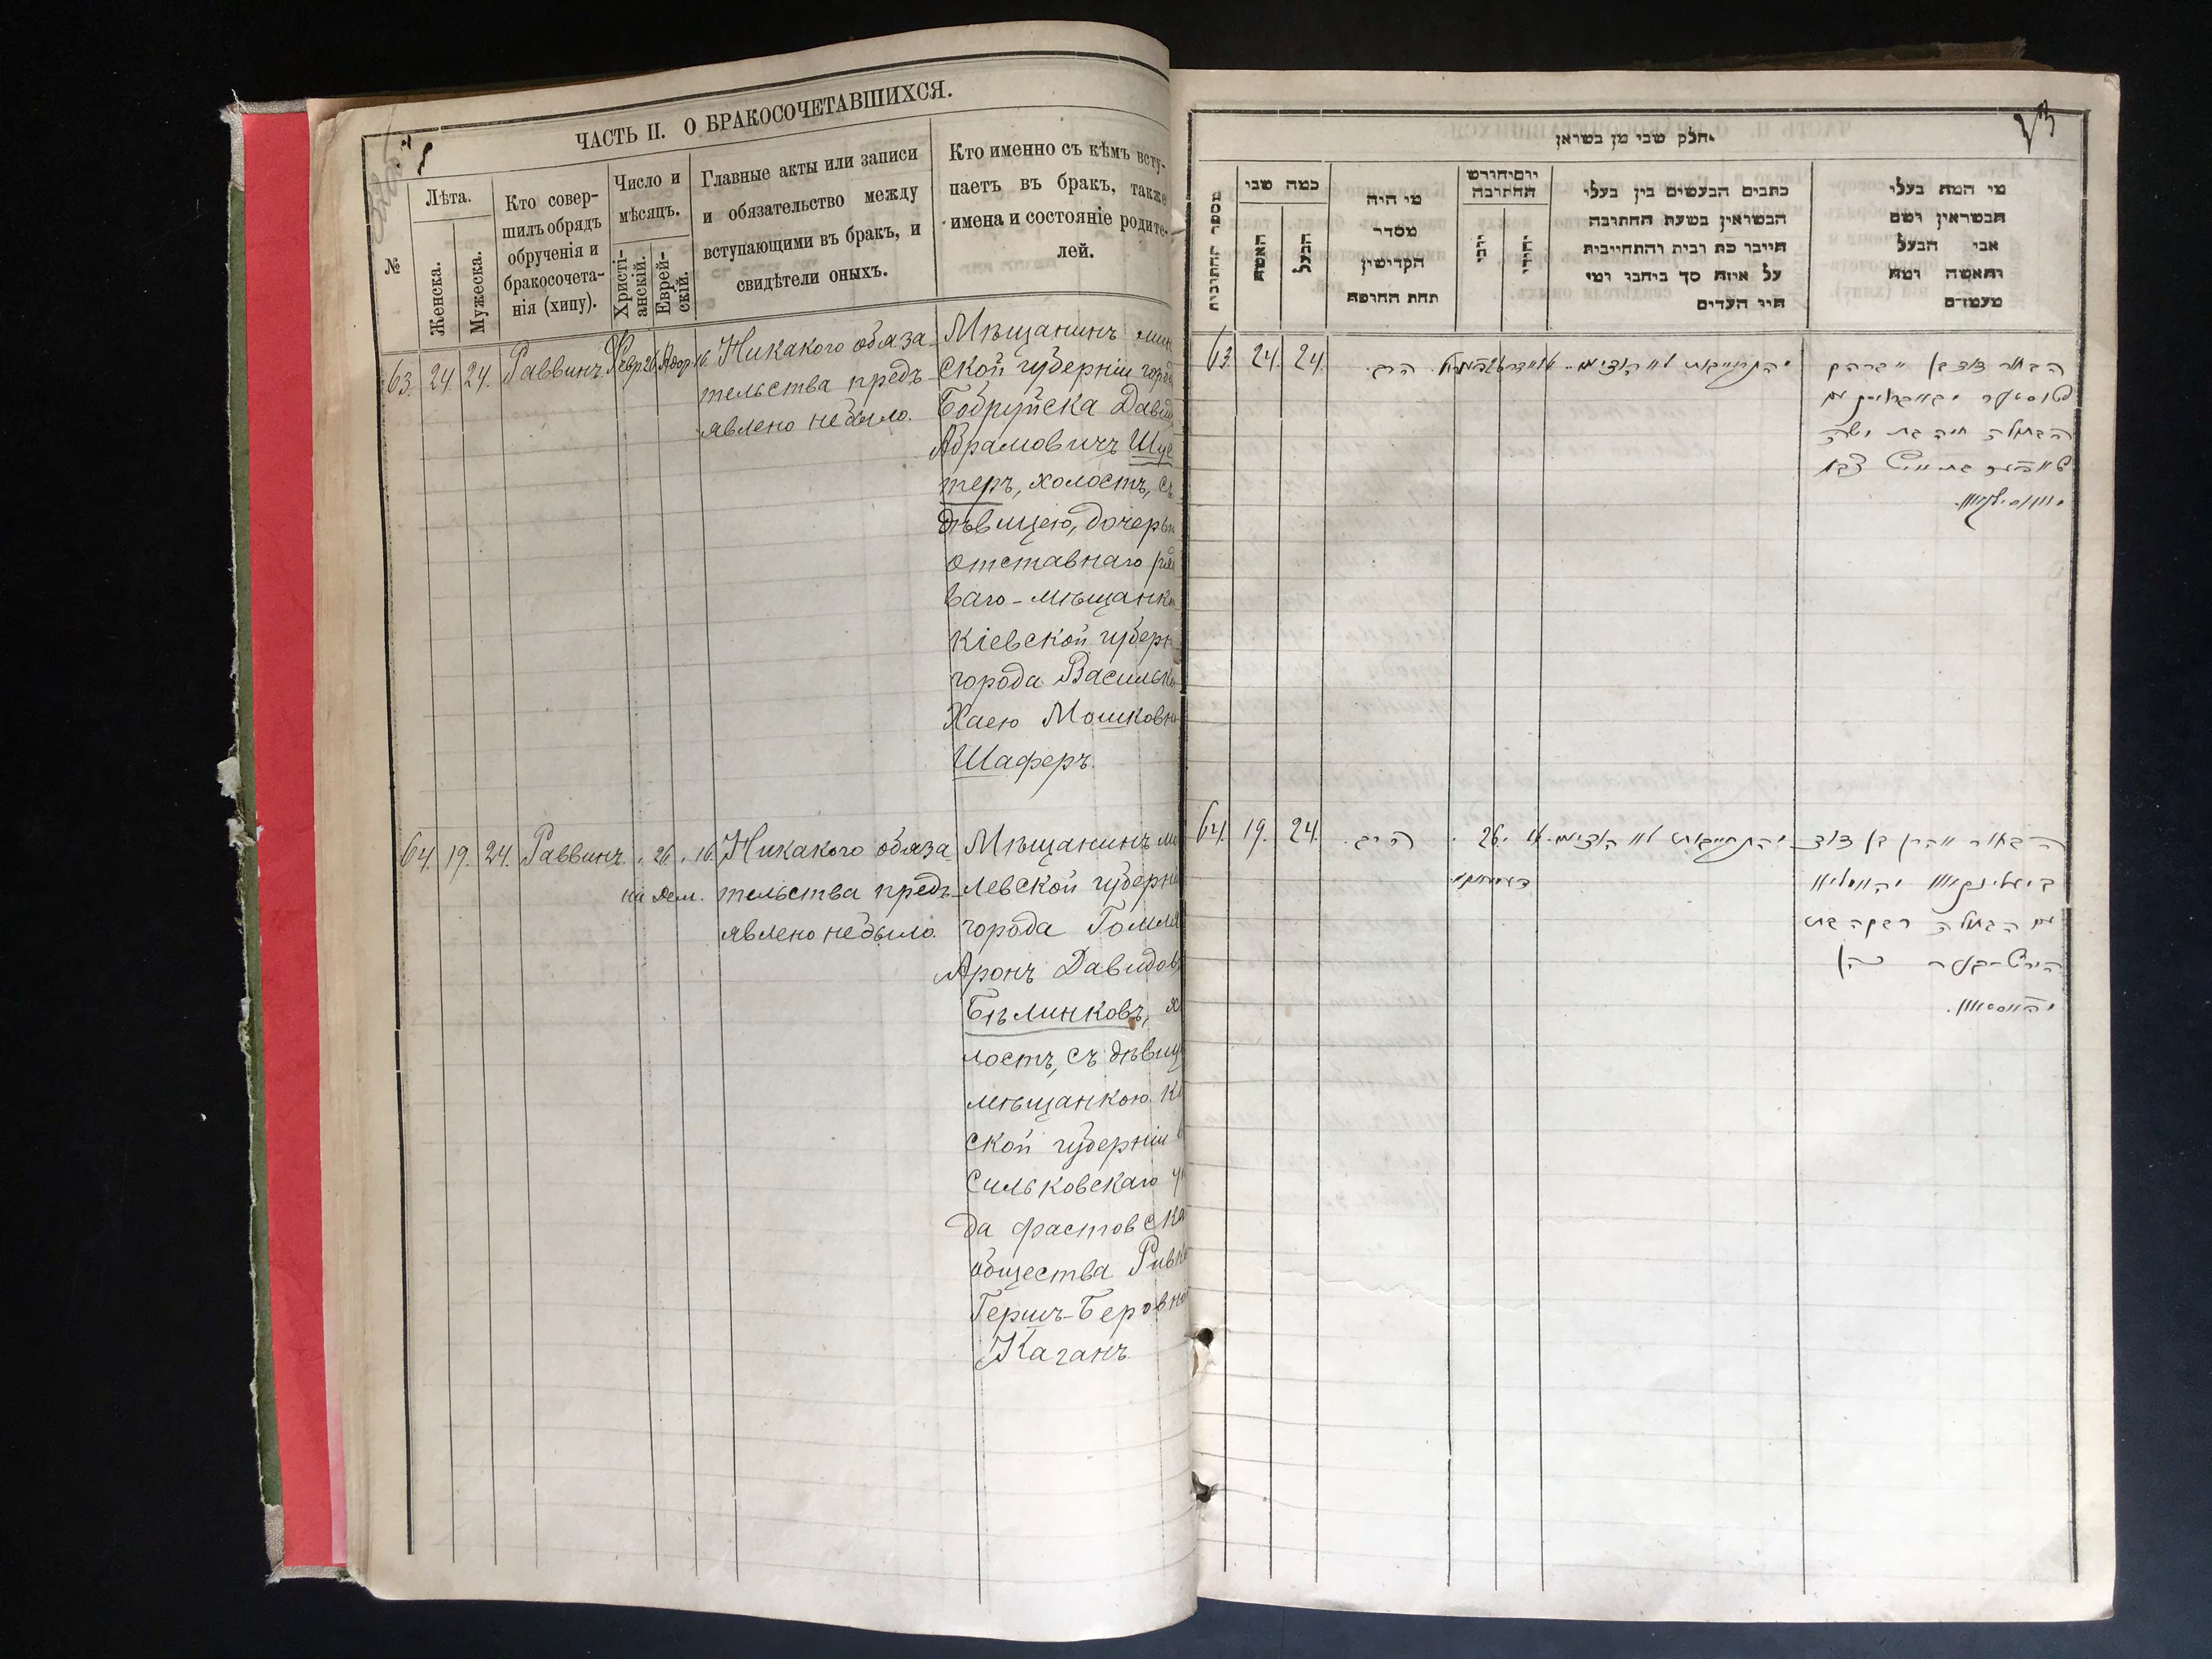 ЧАСТЬ II. О БРАКОСОЧЕТАВШИХСЯ.
№
Лѣта.
Женска.
Мужеска.
Кто совер-
шилъ обрядъ
обрученія и
бракосочета-
нія (хипу).
Число и
мѣсяцъ.
Христі-
анскій.
Еврей-
скій.
Главные акты или записи
и обязательство между
вступающими въ бракъ, и
свидѣтели оныхъ.
Кто именно съ кѣмъ всту-
паетъ въ бракъ, также
имена и состояніе родите-
лей.
63. 24. 24. Раввинъ. Февр. 26. Адор. 16.
Никакого обяза-
тельства предъ-
явлено небыло.
Мѣщанинъ мин
ской губерніи горо
Бобруйска Давид
Абрамовичъ Шус
теръ, холостъ, съ
дѣвицею, дочерью
отставнаго ря
ваго-мѣщанк
Кіевской губерн
города Василькo
Хаею Мошковн
Шаферъ.
64. 19. 24. Раввинъ. 26. 16.
Никакого обяза
тельства предъ-
явлено небыло.
Мѣщанинъ мо
левской губерні
города Гомля
Аронъ Давидов
Бѣлинковъ, хо
лостъ, съ дѣвиц
мѣщанкою Кі
ской губерніи
Сильковскаго у
да фастовска
общества Ривко
Гершъ-Беровно
Каганъ.
חלק שני מן בשואן
מספר החתונות
כמה שני
האשה
הבעל
מי היה
מסדר
הקדישין
תחת החופה
יום יחודש
החתונה
יוני
יהודי
כתבים הנעשים בין בעלי
הנשואין בשעת החתונה
חייבו כת ובית והתחייבית
על איזה סך ביחבו ומי
חיו העדים
מי המה בעלי
הנשואין ושם
אבי הבעל
והאשה ומה
מעמדם
63. 24. 24. הרב.
והתחייבות לא הוציאו.
הבחור דוד בן אברהם
שוסטער
הבתולה חיה בת משה
64. 19. 24. הרב. 26.
והתחייבות לא הוציאו.
הבחור אהרן בן דוד
עם הבתולה רבקה בת
הירש-בער כהן